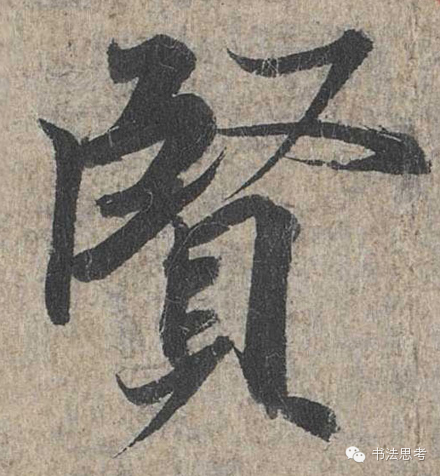 賢
书法思考